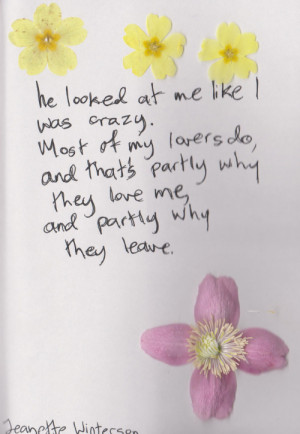 he looked at me like I
was crazy.
Most of my lovers do,
and that's partly why
they love me,
and partly why
they leave.
Jeanette Winterson